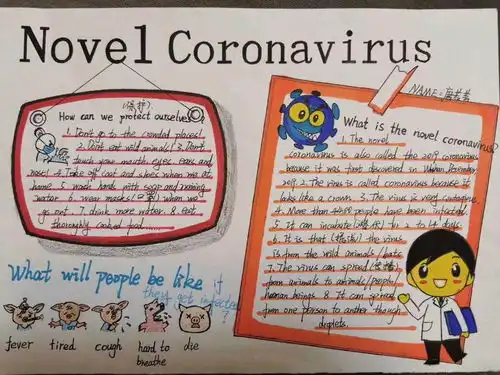 Novel Coronavirus
(保护)
How can we protect ourselves?
1. Don't go to the crowded places!
2. Don't eat wild animals! 3. Don't
touch your mouth eyes ears and
nose! 4. Take off coat and shoes when we at
home 5. wash hands with soap and running
water 6. wear masks (口罩) when we
go out 7. drink more water 8. eat
thoroughly cooked food
What will people be like if
they get infected
?
fever tired cough hard to breathe die
NAME:
What is the novel coronavirus?
1. The novel
coronavirus is also called the 2019 coronavirus
because it was first discovered in Wuhan December
2019 2. The virus is called coronavirus because it
looks like a crown 3. The virus is very contagious
4. More than people have been infected
5. It can incubate for 2 to 14 days
6. It is that the virus
is from the wild animals / bats
7. The virus can spread
from animals to animals / people
human beings 8. It can spread
from one person to another though
droplets.